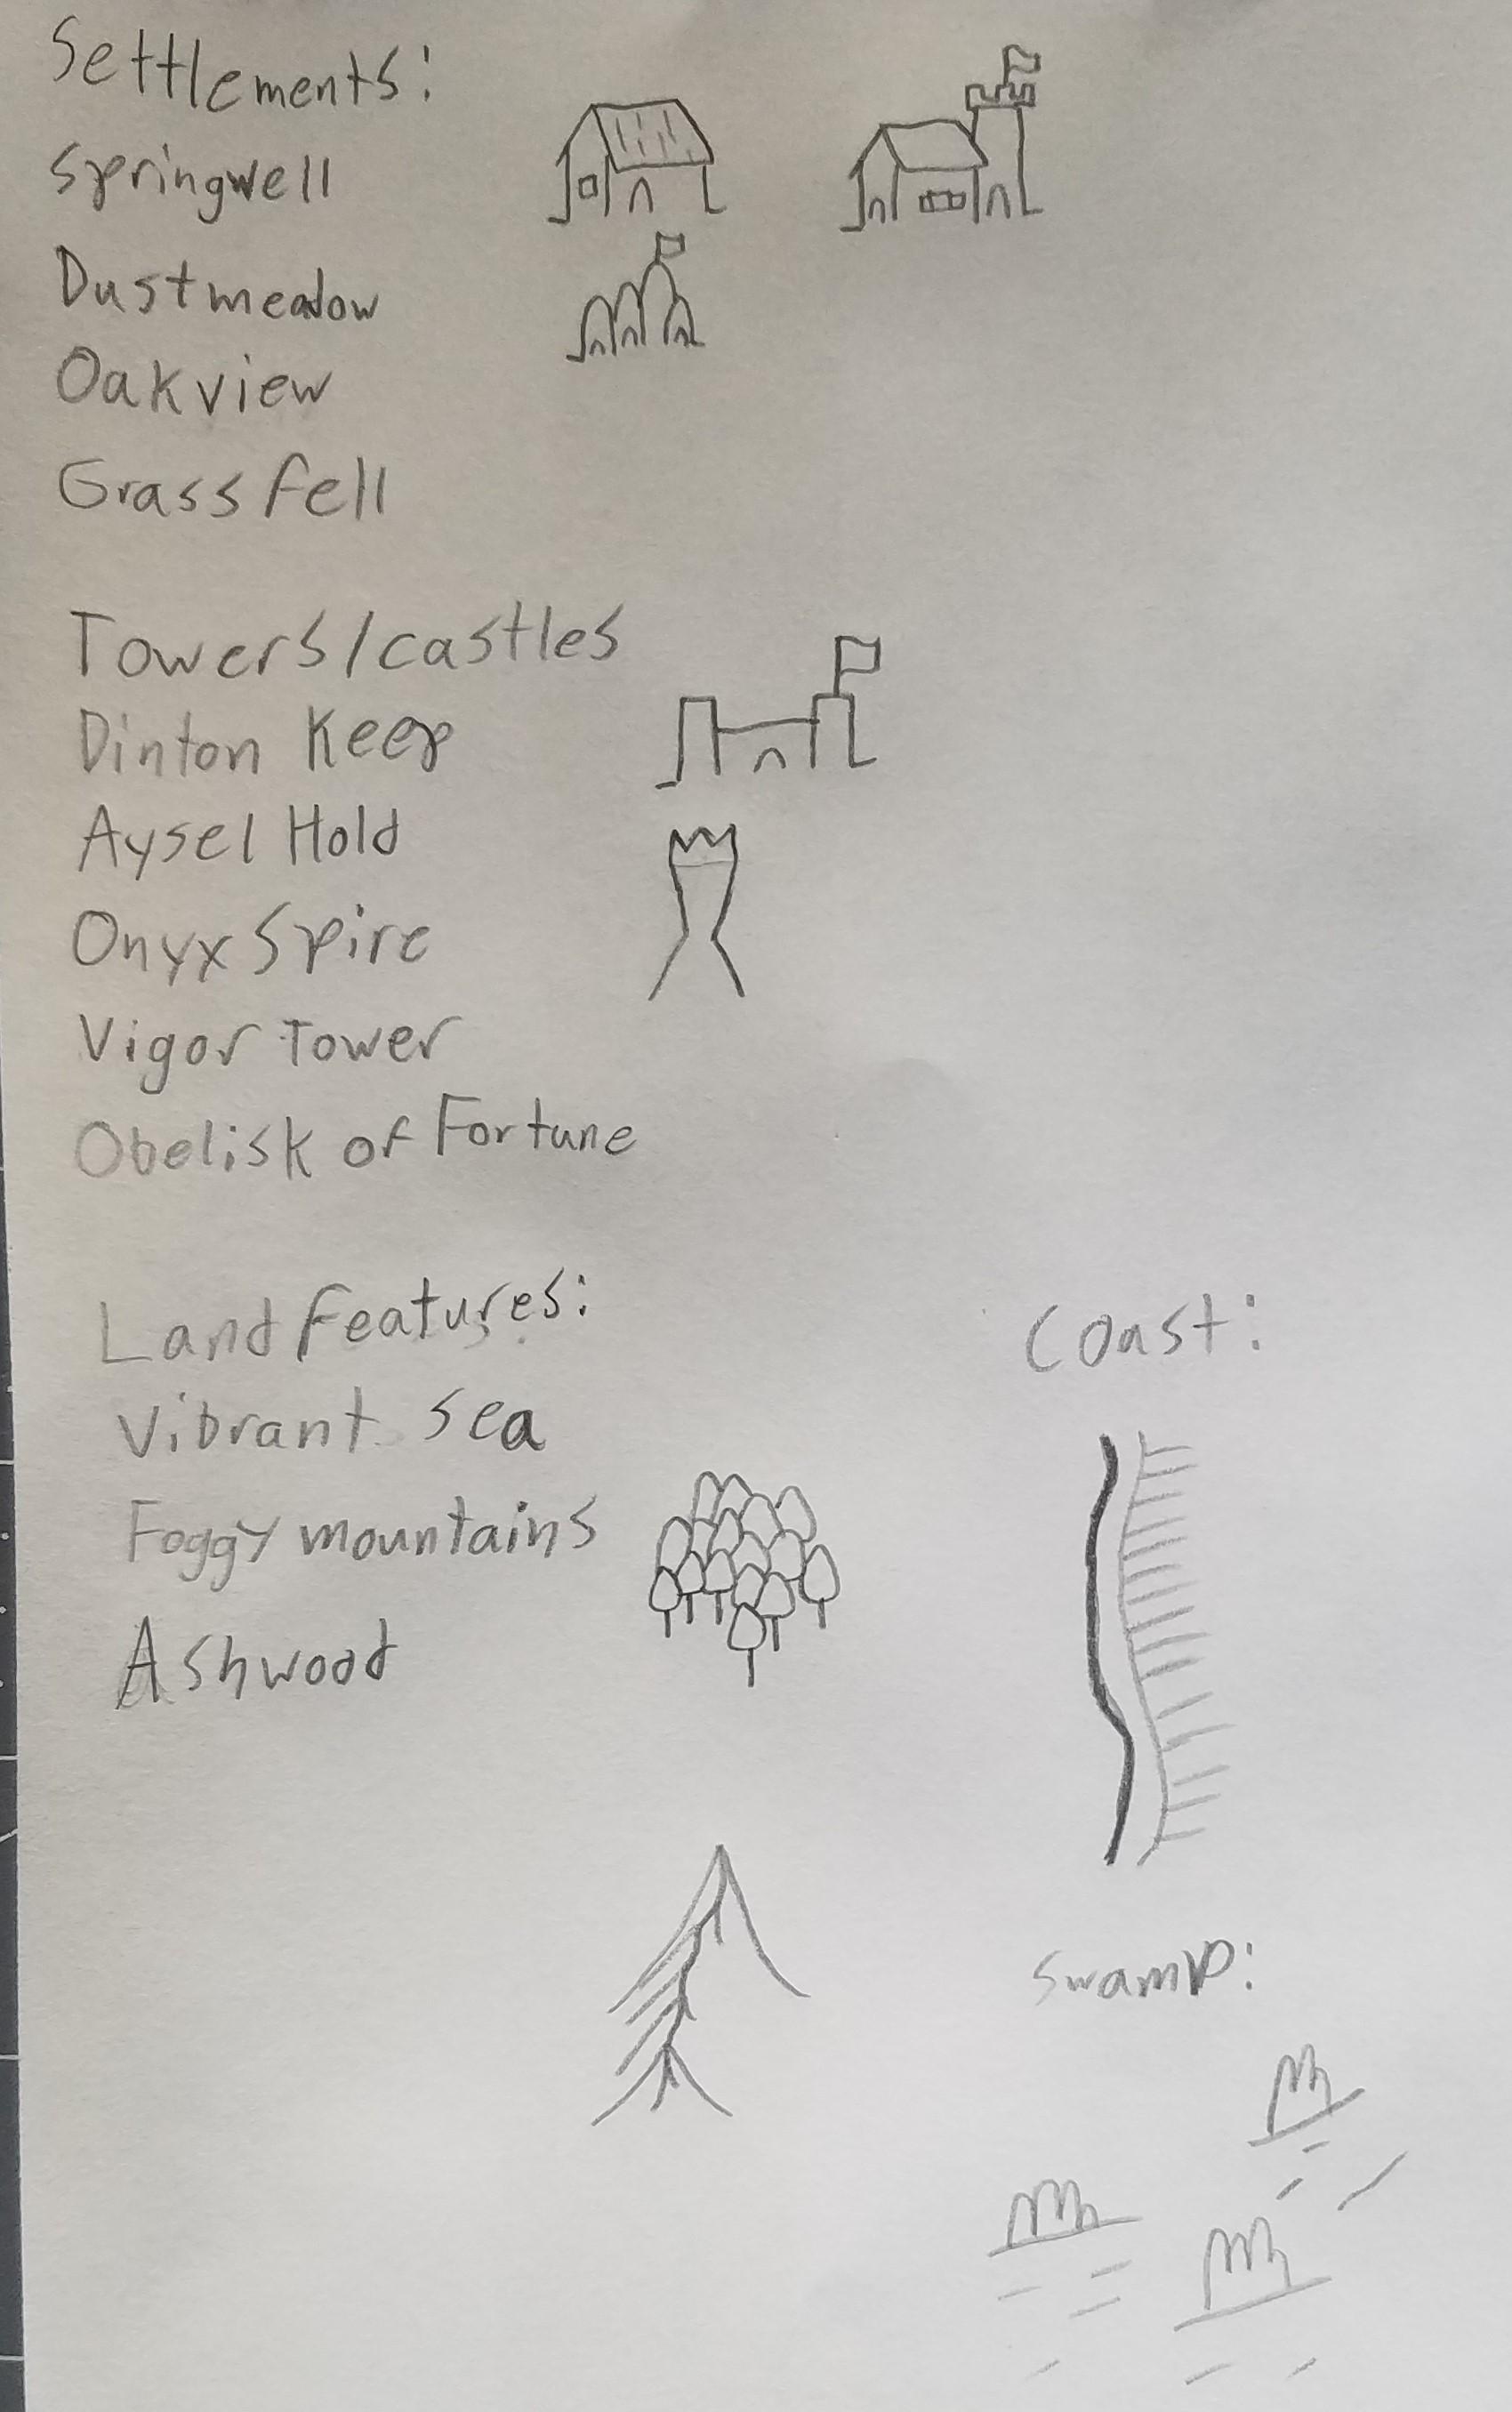 Settlements:
Springwell
Dustmeadow
Oakview
Grassfell
Towers/castles
Dinton Keep
Aysel Hold
Onyx Spire
Vigor Tower
Obelisk of Fortune
Land features:
Vibrant sea
Foggy mountains
Ashwood
Coast:
Swamp: